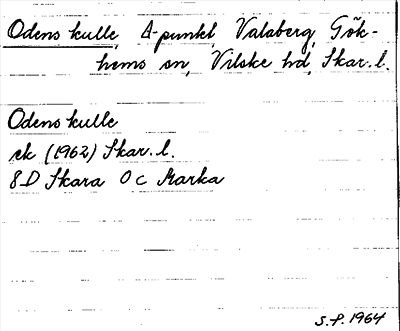 Odens kulle, A-punkt, Valsberg, Gök-
hems sn, Vilske hd, Skar. l.
Odens kulle
ek (1962) Skar. l.
8D Skara 0c Marka
S.P. 1964